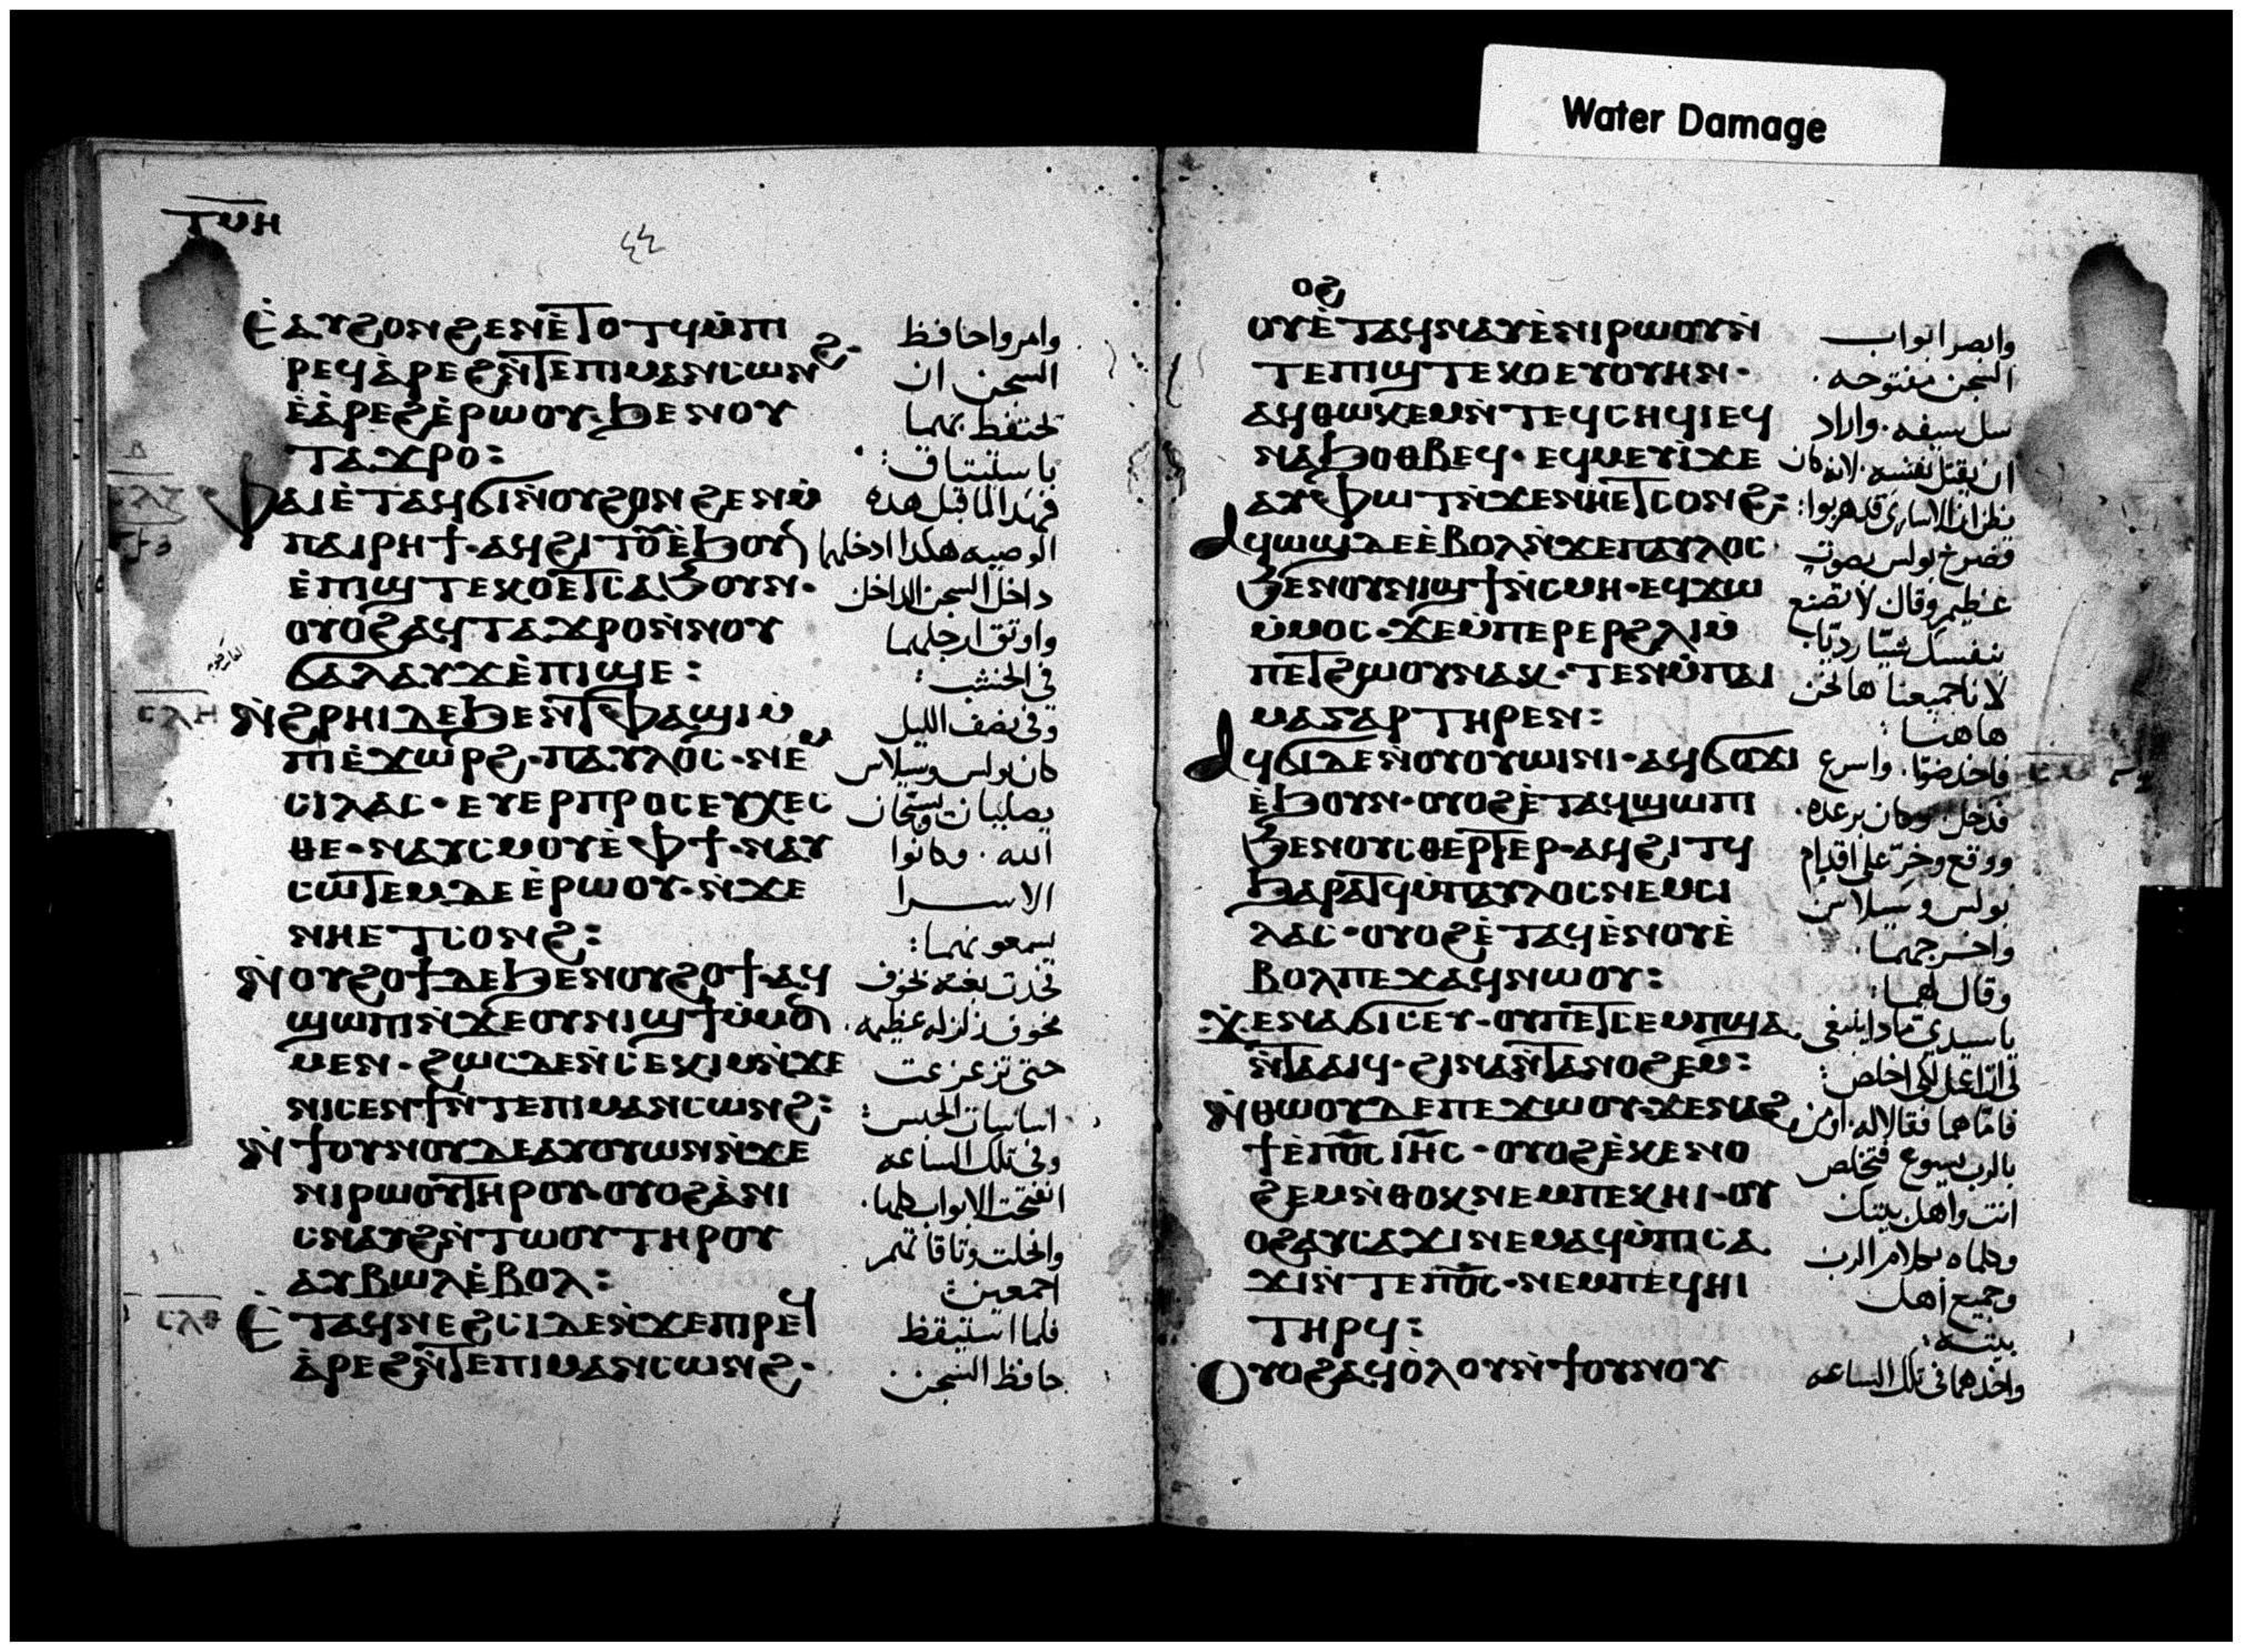 Water Damage
ⲧⲩⲏ
ⲉ̀ⲁⲩϩⲟⲛϩⲉⲛⲉ̀ⲧⲟⲧϥⲙ̀ⲡⲓ
ⲣⲉϥⲁ̀ⲣⲉϩⲛ̀ⲧⲉⲡⲓⲙⲁⲛⲥⲱⲛϩ·
ⲉ̀ⲁ̀ⲣⲉϩⲉ̀ⲣⲱⲟⲩ·ϧⲉⲛⲟⲩ
ⲧⲁϫⲣⲟ:
ⲫⲁⲓⲉ̀ⲧⲁϥϭⲓⲛ̀ⲟⲩϩⲟⲛϩⲉⲛⲙ̀
ⲡⲁⲓⲣⲏϯ·ⲁϥϩⲓⲧⲟⲩⲉ̀ϧⲟⲩⲛ
ⲉ̀ⲡⲓϣⲧⲉⲕⲟⲉⲧⲥⲁϧⲟⲩⲛ·
ⲟⲩⲟϩⲁϥⲧⲁϫⲣⲟⲛ̀ⲛⲟⲩ
ϭⲁⲗⲁⲩϫⲉ̀ⲡⲓϣⲉ:
ⲛ̀ϩⲣⲏⲓⲇⲉϧⲉⲛⲧ̀ⲫⲁϣⲓⲙ̀
ⲡⲓⲉ̀ϫⲱⲣϩ·ⲡⲁⲩⲗⲟⲥ·ⲛⲉⲙ
ⲥⲓⲗⲁⲥ·ⲉⲩⲉⲣⲡⲣⲟⲥⲉⲩⲭⲉⲥ
ⲑⲉ·ⲛⲁⲩⲥⲙⲟⲩⲉ̀ⲫϯ·ⲛⲁⲩ
ⲥⲱⲧⲉⲙⲇⲉⲉ̀ⲣⲱⲟⲩ·ⲛ̀ϫⲉ
ⲛⲏⲉⲧⲥⲟⲛϩ:
ⲛ̀ⲟⲩϩⲟϯⲇⲉϧⲉⲛⲟⲩϩⲟϯ·ⲁϥ
ϣⲱⲡⲓⲛ̀ϫⲉⲟⲩⲛⲓϣϯⲙ̀ⲙⲟⲛ
ⲙⲉⲛ·ϩⲱⲥⲇⲉⲛ̀ⲥⲉⲕⲓⲙⲛ̀ϫⲉ
ⲛⲓⲥⲉⲛϯⲛ̀ⲧⲉⲡⲓⲙⲁⲛⲥⲱⲛϩ:
ⲛ̀ϯⲟⲩⲛⲟⲩⲇⲉⲁⲩⲟⲩⲱⲛⲛ̀ϫⲉ
ⲛⲓⲣⲱⲟⲩⲧⲏⲣⲟⲩ·ⲟⲩⲟϩⲁ̀ⲛⲓ
ⲥⲛⲁⲩϩⲛ̀ⲧⲱⲟⲩⲧⲏⲣⲟⲩ
ⲁⲩⲃⲱⲗⲉ̀ⲃⲟⲗ:
ⲉ̀ⲧⲁϥⲛⲉϩⲥⲓⲇⲉⲛ̀ϫⲉⲡⲓⲣⲉϥ
ⲁ̀ⲣⲉϩⲛ̀ⲧⲉⲡⲓⲙⲁⲛⲥⲱⲛϩ·
وامروا حافظ
السجن ان
تحتفظ بهما
باستيثاق:
فهذا لما قبل هذه
الوصيه هكدا ادخلهما
داخل السجن الداخل
واوثق ارجلهما
في الخشب:
وفي نصف الليل
كان بولس وسيلاس
يصليان ويسبحان
الله. وكانوا
الاسرا
يسمعونهما:
فحدث بغتة بخوف
مخوف زلزله عظيمه.
حتى تزعزعت
اساسات الحبس:
وفي تلك الساعه
انفتحت الابواب كلها.
وانحلت وثاقاتهم
اجمعين:
فلما استيقظ
حافظ السجن
ⲟϩ
ⲟⲩⲉ̀ⲧⲁϥⲛⲁⲩⲉ̀ⲛⲓⲣⲱⲟⲩⲛ̀
ⲧⲉⲡⲓϣⲧⲉⲕⲟⲉⲩⲟⲩⲏⲛ·
ⲁϥⲑⲱⲕⲉⲙⲛ̀ⲧⲉϥⲥⲏϥⲓⲉϥ
ⲛⲁϧⲟⲑⲃⲉϥ·ⲉϥⲙⲉⲩⲓ̀ϫⲉ
ⲁⲩⲫⲱⲧⲛ̀ϫⲉⲛⲏⲉⲧⲥⲟⲛϩ:
ⲁϥⲱϣⲇⲉⲉ̀ⲃⲟⲗⲛ̀ϫⲉⲡⲁⲩⲗⲟⲥ·
ϧⲉⲛⲟⲩⲛⲓϣϯⲛ̀ⲥⲙⲏ·ⲉϥϫⲱ
ⲙ̀ⲙⲟⲥ·ϫⲉⲙ̀ⲡⲉⲣⲉⲣϩⲗⲓⲙ̀
ⲡⲉⲧϩⲱⲟⲩⲛⲁⲕ·ⲧⲉⲛⲙ̀ⲡⲁⲓ
ⲙⲁⲅⲁⲣⲧⲏⲣⲉⲛ:
ⲁϥϭⲓⲇⲉⲛⲟⲩⲟⲩⲱⲓⲛⲓ·ⲁϥϭⲟϫⲓ
ⲉ̀ϧⲟⲩⲛ·ⲟⲩⲟϩⲉ̀ⲧⲁϥϣⲱⲡⲓ
ϧⲉⲛⲟⲩⲥⲑⲉⲣⲧⲉⲣ·ⲁϥϩⲓⲧϥ
ϧⲁⲣⲁⲧϥⲙ̀ⲡⲁⲩⲗⲟⲥⲛⲉⲙⲥⲓ
ⲗⲁⲥ·ⲟⲩⲟϩⲉ̀ⲧⲁϥⲉ̀ⲛⲟⲩⲉ̀
ⲃⲟⲗⲡⲉϫⲁϥⲛⲱⲟⲩ:
ϫⲉⲛⲁϭⲓⲥⲉⲩ·ⲟⲩⲡⲉⲧⲥⲉⲙⲡϣⲁ
ⲛ̀ⲧⲁⲁⲓϥ·ϩⲓⲛⲁⲛ̀ⲧⲁⲛⲟϩⲉⲙ:
ⲛ̀ⲑⲱⲟⲩⲇⲉⲡⲉϫⲱⲟⲩ·ϫⲉⲛⲁϩ
ϯⲉ̀ⲡⲟ̅ⲥ̅ⲓⲏ̅ⲥ̅·ⲟⲩⲟϩⲉ̀ⲕⲉⲛⲟ
ϩⲉⲙⲛ̀ⲑⲟⲕⲛⲉⲙⲡⲉⲕⲏⲓ·ⲟⲩ
ⲟϩⲁⲩⲥⲁϫⲓⲛⲉⲙⲁϥⲙ̀ⲡⲓⲥⲁ
ϫⲓⲛ̀ⲧⲉⲡⲟ̅ⲥ̅·ⲛⲉⲙⲡⲉϥⲏⲓ
ⲧⲏⲣϥ:
ⲟⲩⲟϩⲁϥⲟ̀ⲗⲟⲩⲛ̀ϯⲟⲩⲛⲟⲩ
وابصر ابواب
السجن مفتوحه.
سل سيفه. واراد
ان يقتل نفسه. لانه كان
يظن ان الاسارى قد هربوا:
فصرخ بولس بصوت
عظيم وقال لا تصنع
بنفسك شيئا رديا
لانا جميعنا ها نحن
هاهنا:
فاخد ضوا. واسرع
فدخل. وكان برعده.
ووقع وخر على اقدام
بولس وسيلاس
واخرجهما.
وقال لهما:
يا سيدي ماذا ينبغي
لي ان اعمل لكي اخلص:
فاما هما فقالا له. اومن
بالرب يسوع فتخلص
انت واهل بيتك
وكلماه بكلام الرب
وجميع اهل
بيته:
واخدهما في تلك الساعه